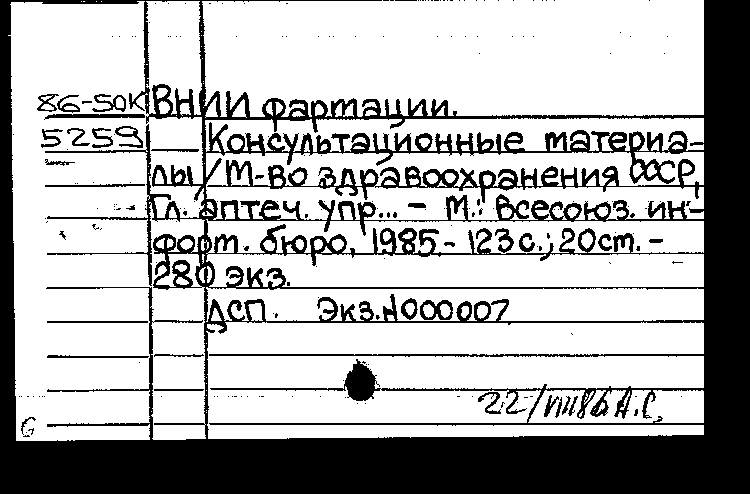 86-50К ВНИИ фармации.
5259 Консультационные материа-
лы / М-во здравоохранения СССР,
Гл. аптеч. упр... - М.: Всесоюз. ин-
форм. бюро, 1985.- 123 с.; 20 см. -
280 экз.
ДСП. Экз. N000007
22/VIII86 А.С.
G